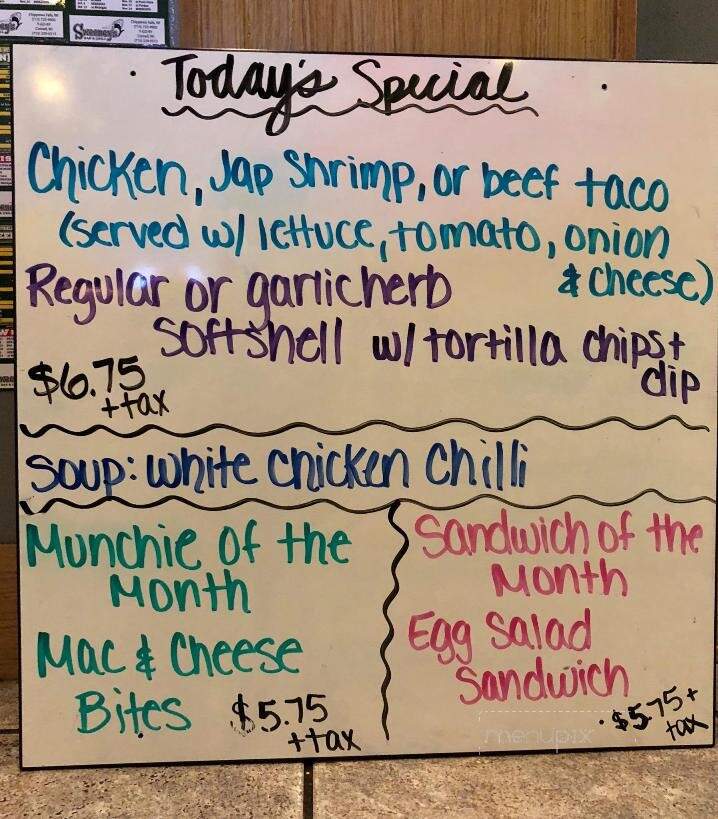 Sweeney's
Today's Special
Chicken, Jap Shrimp, or beef taco
(served w/ lettuce, tomato, onion
& cheese)
Regular or garlicherb
softshell w/ tortilla chips +
dip
$6.75
+tax
Soup: white chicken Chilli
Munchie of the
Month
Mac & Cheese
Bites $5.75
+tax
Sandwich of the
Month
Egg Salad
Sandwich
$5.75 +
tax
menupix